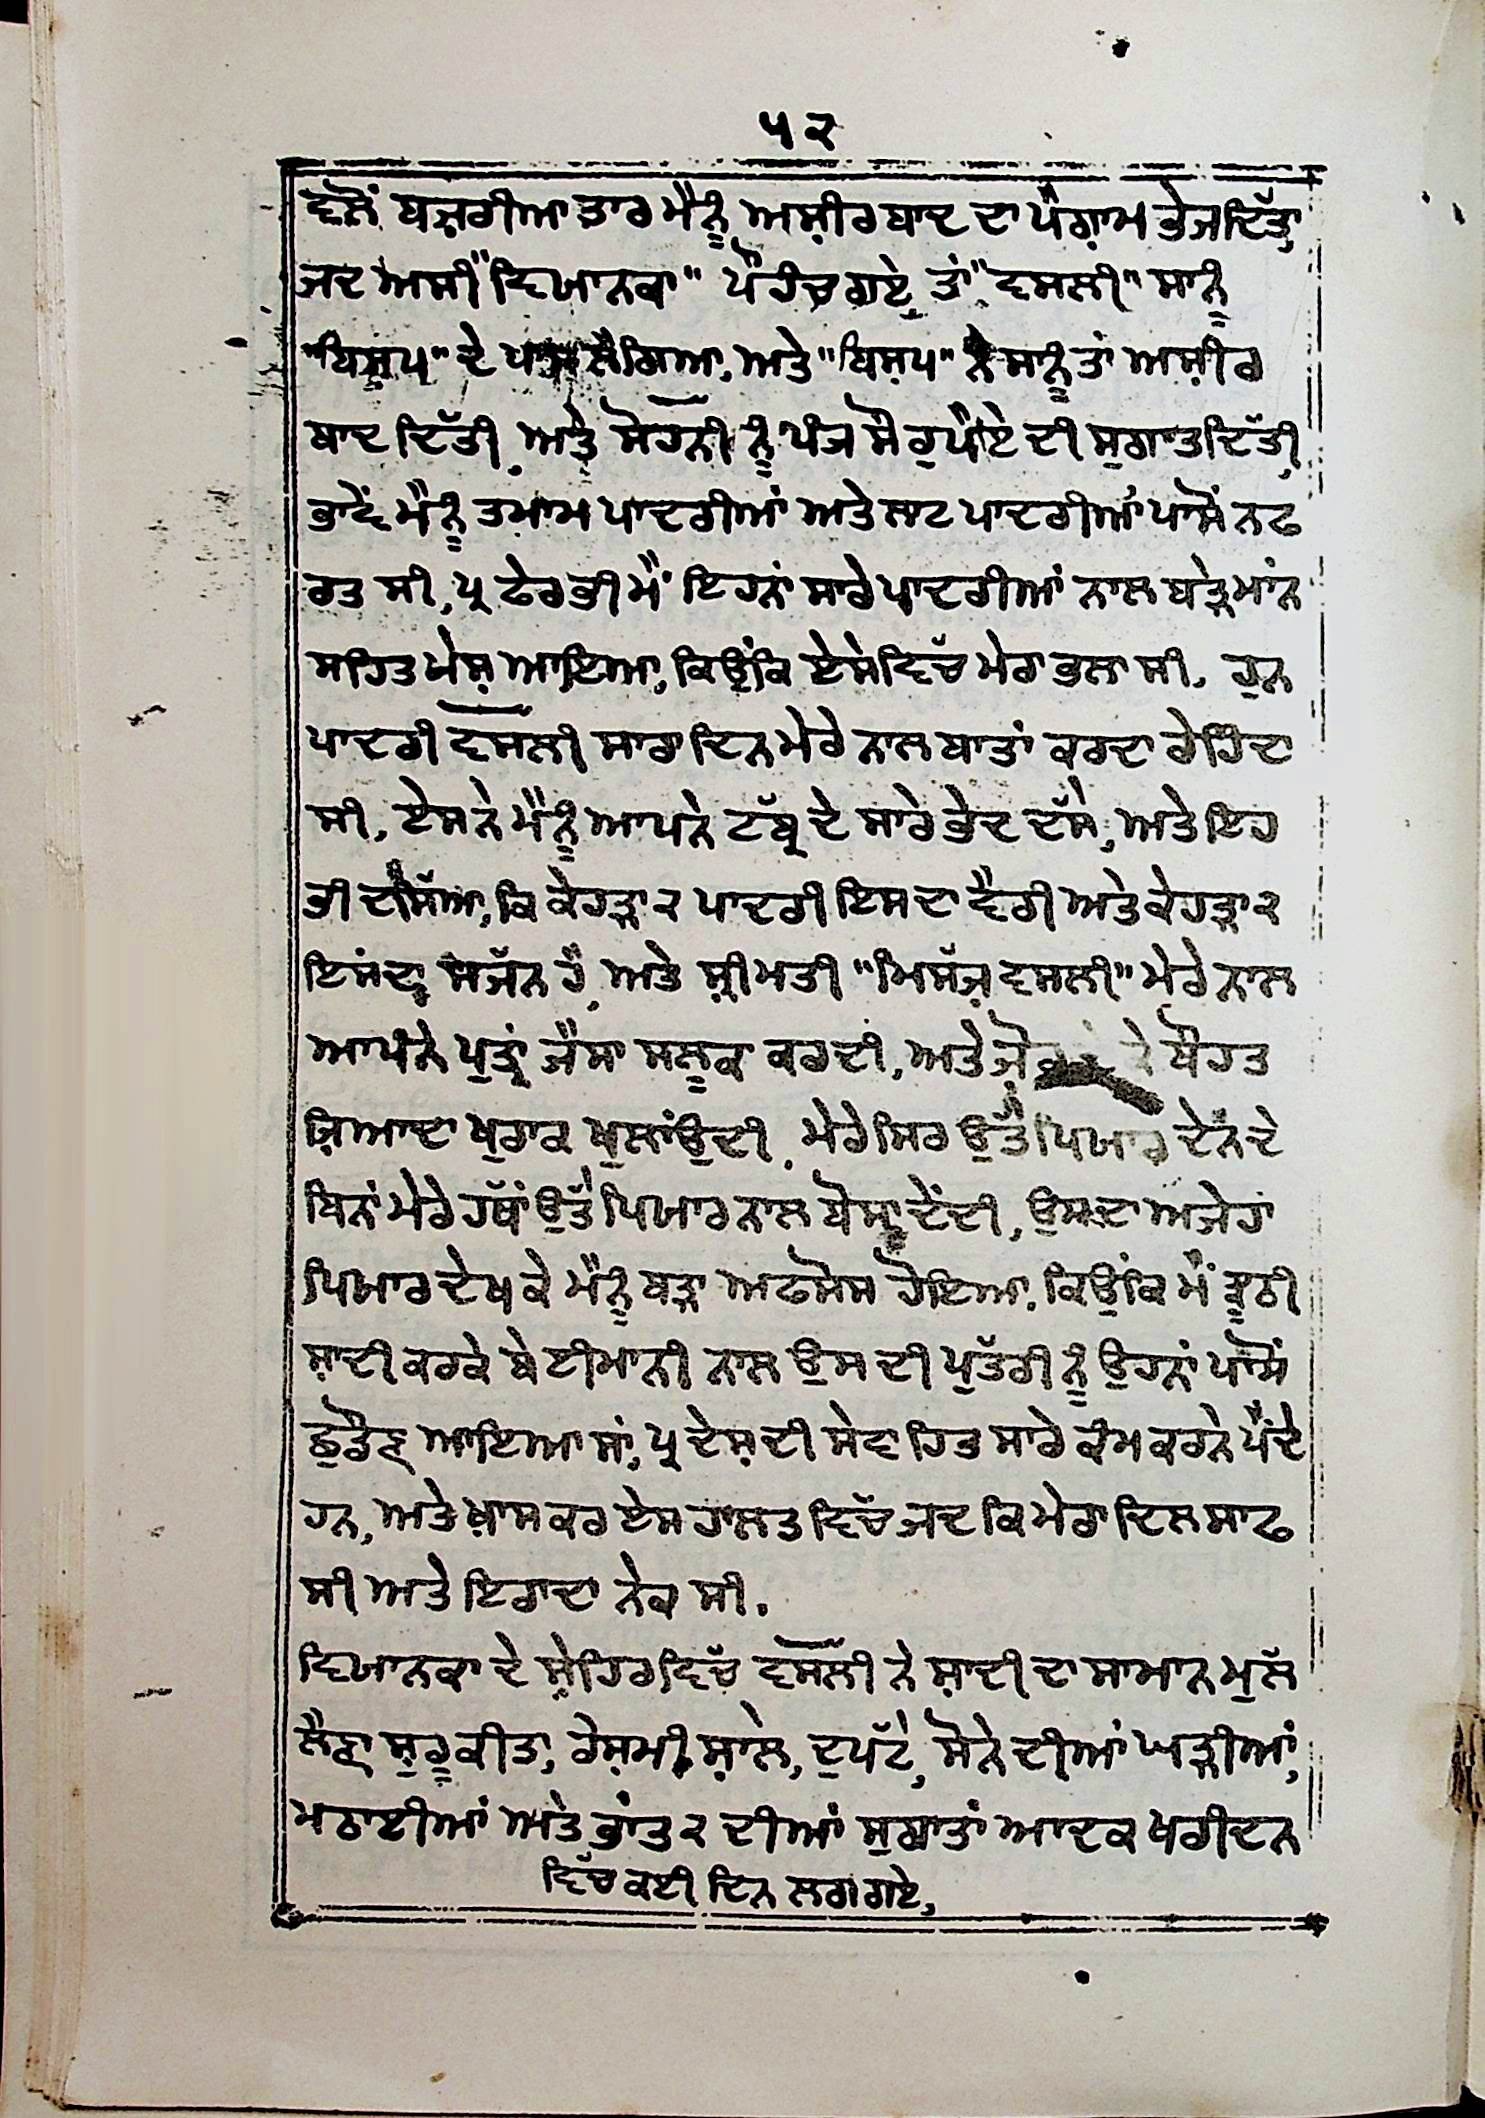 ੫੨
ਵਲੋਂ ਬਜ਼ਰੀਆ ਤਾਰ ਮੈਨੂੰ ਅਸ਼ੀਰ ਬਾਦ ਦਾ ਪੈਗ਼ਾਮ ਭੇਜ ਦਿੱਤਾ,
ਜਦ ਅਸੀ "ਵਿਯਾਨਕਾ" ਪੌਹੰਚ ਗਏ, ਤਾਂ "ਵਸਲੀ" ਸਾਨੂੰ
"ਬਿਸ਼ਪ" ਦੇ ਪਾਸ ਲੈਗਿਆ, ਅਤੇ "ਬਿਸ਼ਪ" ਨੇ ਸਾਨੂੰ ਤਾਂ ਅਸ਼ੀਰ
ਬਾਦ ਦਿੱਤੀ, ਅਤੇ ਸੋਹਨੀ ਨੂੰ ਪੰਜ ਸੌ ਰੁਪੈਏ ਦੀ ਸੁਗਾਤ ਦਿੱਤੀ,
ਭਾਵੇਂ ਮੈਨੂੰ ਤਮਾਮ ਪਾਦਰੀਆਂ ਅਤੇ ਲਾਟ ਪਾਦਰੀਆਂ ਪਾਸੋਂ ਨਫ
ਰਤ ਸੀ, ਪ੍ਰ ਫੇਰ ਭੀ ਮੈਂ ਇਹਨਾਂ ਸਾਰੇ ਪਾਦਰੀਆਂ ਨਾਲ ਬੜੇ ਮਾਂਨ
ਸਹਿਤ ਪੇਸ਼ ਆਇਆ, ਕਿਉਂਕਿ ਏਸੇ ਵਿੱਚ ਮੇਰਾ ਭਲਾ ਸੀ, ਹੁਨ
ਪਾਦਰੀ ਵਸਲੀ ਸਾਰਾ ਦਿਨ ਮੇਰੇ ਨਾਲ ਬਾਤਾਂ ਕਰਦਾ ਰੇਹਿੰਦਾ
ਸੀ, ਏਸਨੇ ਮੈਨੂੰ ਆਪਨੇ ਟੱਬ੍ਰ ਦੇ ਸਾਰੇ ਭੇਦ ਦੱਸੇ, ਅਤੇ ਇਹ
ਭੀ ਦੱਸਿਆ, ਕਿ ਕੇਹੜਾ ੨ ਪਾਦਰੀ ਇਸਦਾ ਵੈਰੀ ਅਤੇ ਕੇਹੜਾ ੨
ਇਸਦਾ ਸਜੱਨ ਹੈ, ਅਤੇ ਸ਼੍ਰੀਮਤੀ "ਮਿਸੱਜ਼ ਵਸਲੀ" ਮੇਰੇ ਨਾਲ
ਆਪਨੇ ਪੁਤ੍ਰਾਂ ਜੈਸਾ ਸਲੂਕ ਕਰਦੀ, ਅਤੇ ਬੌਹਤ
ਜ਼ਿਆਦਾ ਖੁਰਾਕ ਖੁਲਾਂਉਦੀ, ਮੇਰੇ ਸਿਰ ਉੱਤੇ ਪਿਯਾਰ ਦੇਨ ਦੇ
ਬਿਨਾਂ ਮੇਰੇ ਹੱਥਾਂ ਉੱਤੇ ਪਿਯਾਰ ਨਾਲ ਬੋਸਾ ਦੇਂਦੀ, ਉਸਦਾ ਅਜੇਹਾ
ਪਿਯਾਰ ਦੇਖ ਕੇ ਮੈਨੂੰ ਬੜਾ ਅਫਸੋਸ ਹੋਇਆ, ਕਿਉਂਕਿ ਮੈਂ ਝੂਠੀ
ਸ਼ਾਦੀ ਕਰਕੇ ਬੇਈਮਾਨੀ ਨਾਲ ਉਸ ਦੀ ਪੁਤੱਰੀ ਨੂੰ ਉਹਨਾਂ ਪਾਸੋਂ
ਛੁਡੌਣ ਆਇਆ ਸਾਂ, ਪ੍ਰ ਦੇਸ਼ ਦੀ ਸੇਵਾ ਹਿਤ ਸਾਰੇ ਕੰਮ ਕਰਨੇ ਪੈਂਦੇ
ਹਨ, ਅਤੇ ਖ਼ਾਸ ਕਰ ਏਸ ਹਾਲਤ ਵਿੱਚ ਜਦ ਕਿ ਮੇਰਾ ਦਿਲ ਸਾਫ
ਸੀ ਅਤੇ ਇਰਾਦਾ ਨੇਕ ਸੀ.
ਵਿਯਾਨਕਾ ਦੇ ਸ਼ੇਹਿਰ ਵਿੱਚ ਵਸਲੀ ਨੇ ਸ਼ਾਦੀ ਦਾ ਸਾਮਾਨ ਮੁਲੱ
ਲੈਣਾ ਸ਼ੁਰੂ ਕੀਤਾ, ਰੇਸ਼ਮੀ ਸ਼ਾਲੇ, ਦੁਪੱਟੇ, ਸੋਨੇ ਦੀਆਂ ਘੜੀਆਂ,
ਮਠਾਈਆਂ ਅਤੇ ਭਾਂਤ ੨ ਦੀਆਂ ਸੁਗਾਤਾਂ ਆਦਕ ਖਰੀਦਨ
ਵਿੱਚ ਕਈ ਦਿਨ ਲਗ ਗਏ,